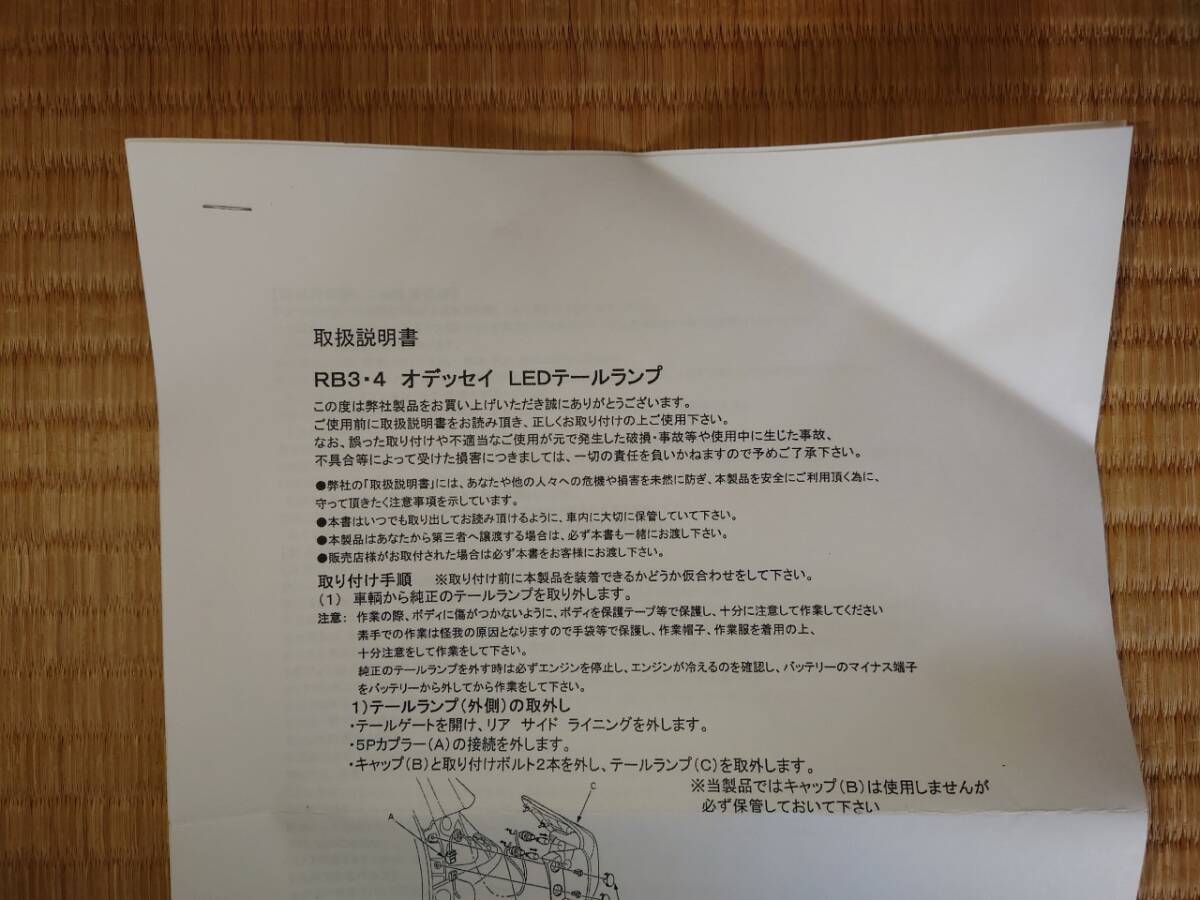 取扱説明書
RB3・4 オデッセイ LEDテールランプ
この度は弊社製品をお買い上げいただき誠にありがとうございます。
ご使用前に取扱説明書をお読み頂き、正しくお取り付けの上ご使用下さい。
なお、誤った取り付けや不適当なご使用が元で発生した破損・事故等や使用中に生じた事故、
不具合等によって受けた損害につきましては、一切の責任を負いかねますので予めご了承下さい。
●弊社の「取扱説明書」には、あなたや他の人々への危機や損害を未然に防ぎ、本製品を安全にご利用頂く為に、
守って頂きたく注意事項を示しています。
●本書はいつでも取り出してお読み頂けるように、車内に大切に保管していて下さい。
●本製品はあなたから第三者へ譲渡する場合は、必ず本書も一緒にお渡し下さい。
●販売店様がお取付された場合は必ず本書をお客様にお渡し下さい。
取り付け手順 ※取り付け前に本製品を装着できるかどうか仮合わせをして下さい。
(1) 車輌から純正のテールランプを取り外します。
注意: 作業の際、ボディに傷がつかないように、ボディを保護テープ等で保護し、十分に注意して作業してください
素手での作業は怪我の原因となりますので手袋等で保護し、作業帽子、作業服を着用の上、
十分注意をして作業をして下さい。
純正のテールランプを外す時は必ずエンジンを停止し、エンジンが冷えるのを確認し、バッテリーのマイナス端子
をバッテリーから外してから作業をして下さい。
1)テールランプ(外側)の取外し
・テールゲートを開け、リア サイド ライニングを外します。
・5Pカプラー(A)の接続を外します。
・キャップ(B)と取り付けボルト2本を外し、テールランプ(C)を取外します。
※当製品ではキャップ(B)は使用しませんが
必ず保管しておいて下さい
C
A